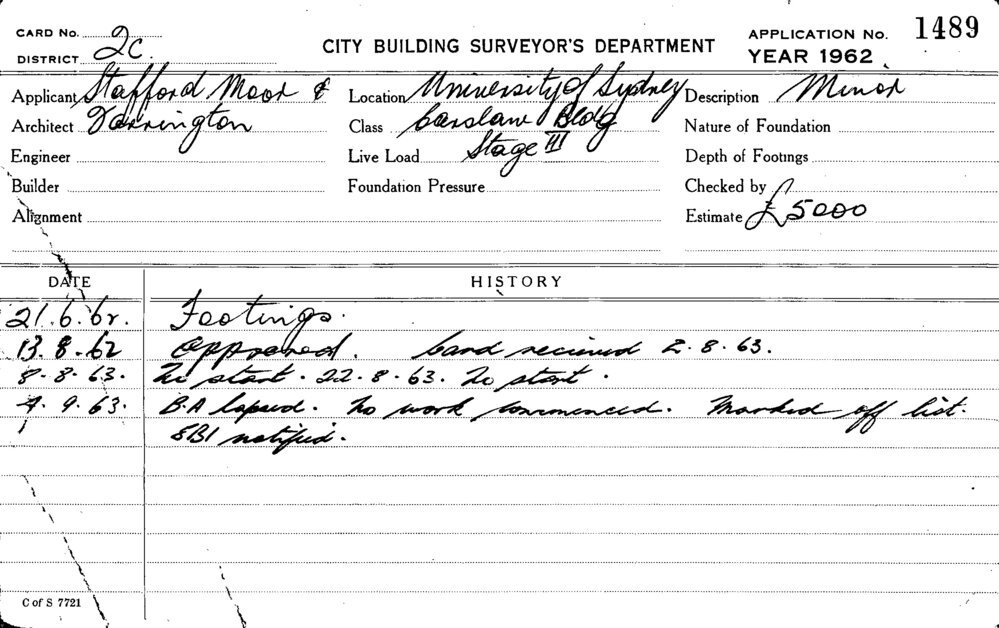 CARD No. 2C.
DISTRICT
CITY BUILDING SURVEYOR'S DEPARTMENT
APPLICATION No. 1489
YEAR 1962
Applicant Stafford Moor &
Architect Farrington
Engineer
Builder
Alignment
Location University of Sydney
Class Carslaw Bldg
Live Load Stage III
Foundation Pressure
Description Minor
Nature of Foundation
Depth of Footings
Checked by
Estimate £5000
DATE HISTORY
21.6.62. Footings.
13.8.62 Approved. Card recieved 2.8.63.
8.8.63. No start. 22.8.63. No start.
4.9.63. B.A lapsed. No work commenced. Marked off list.
SBI notified.
C of S 7721